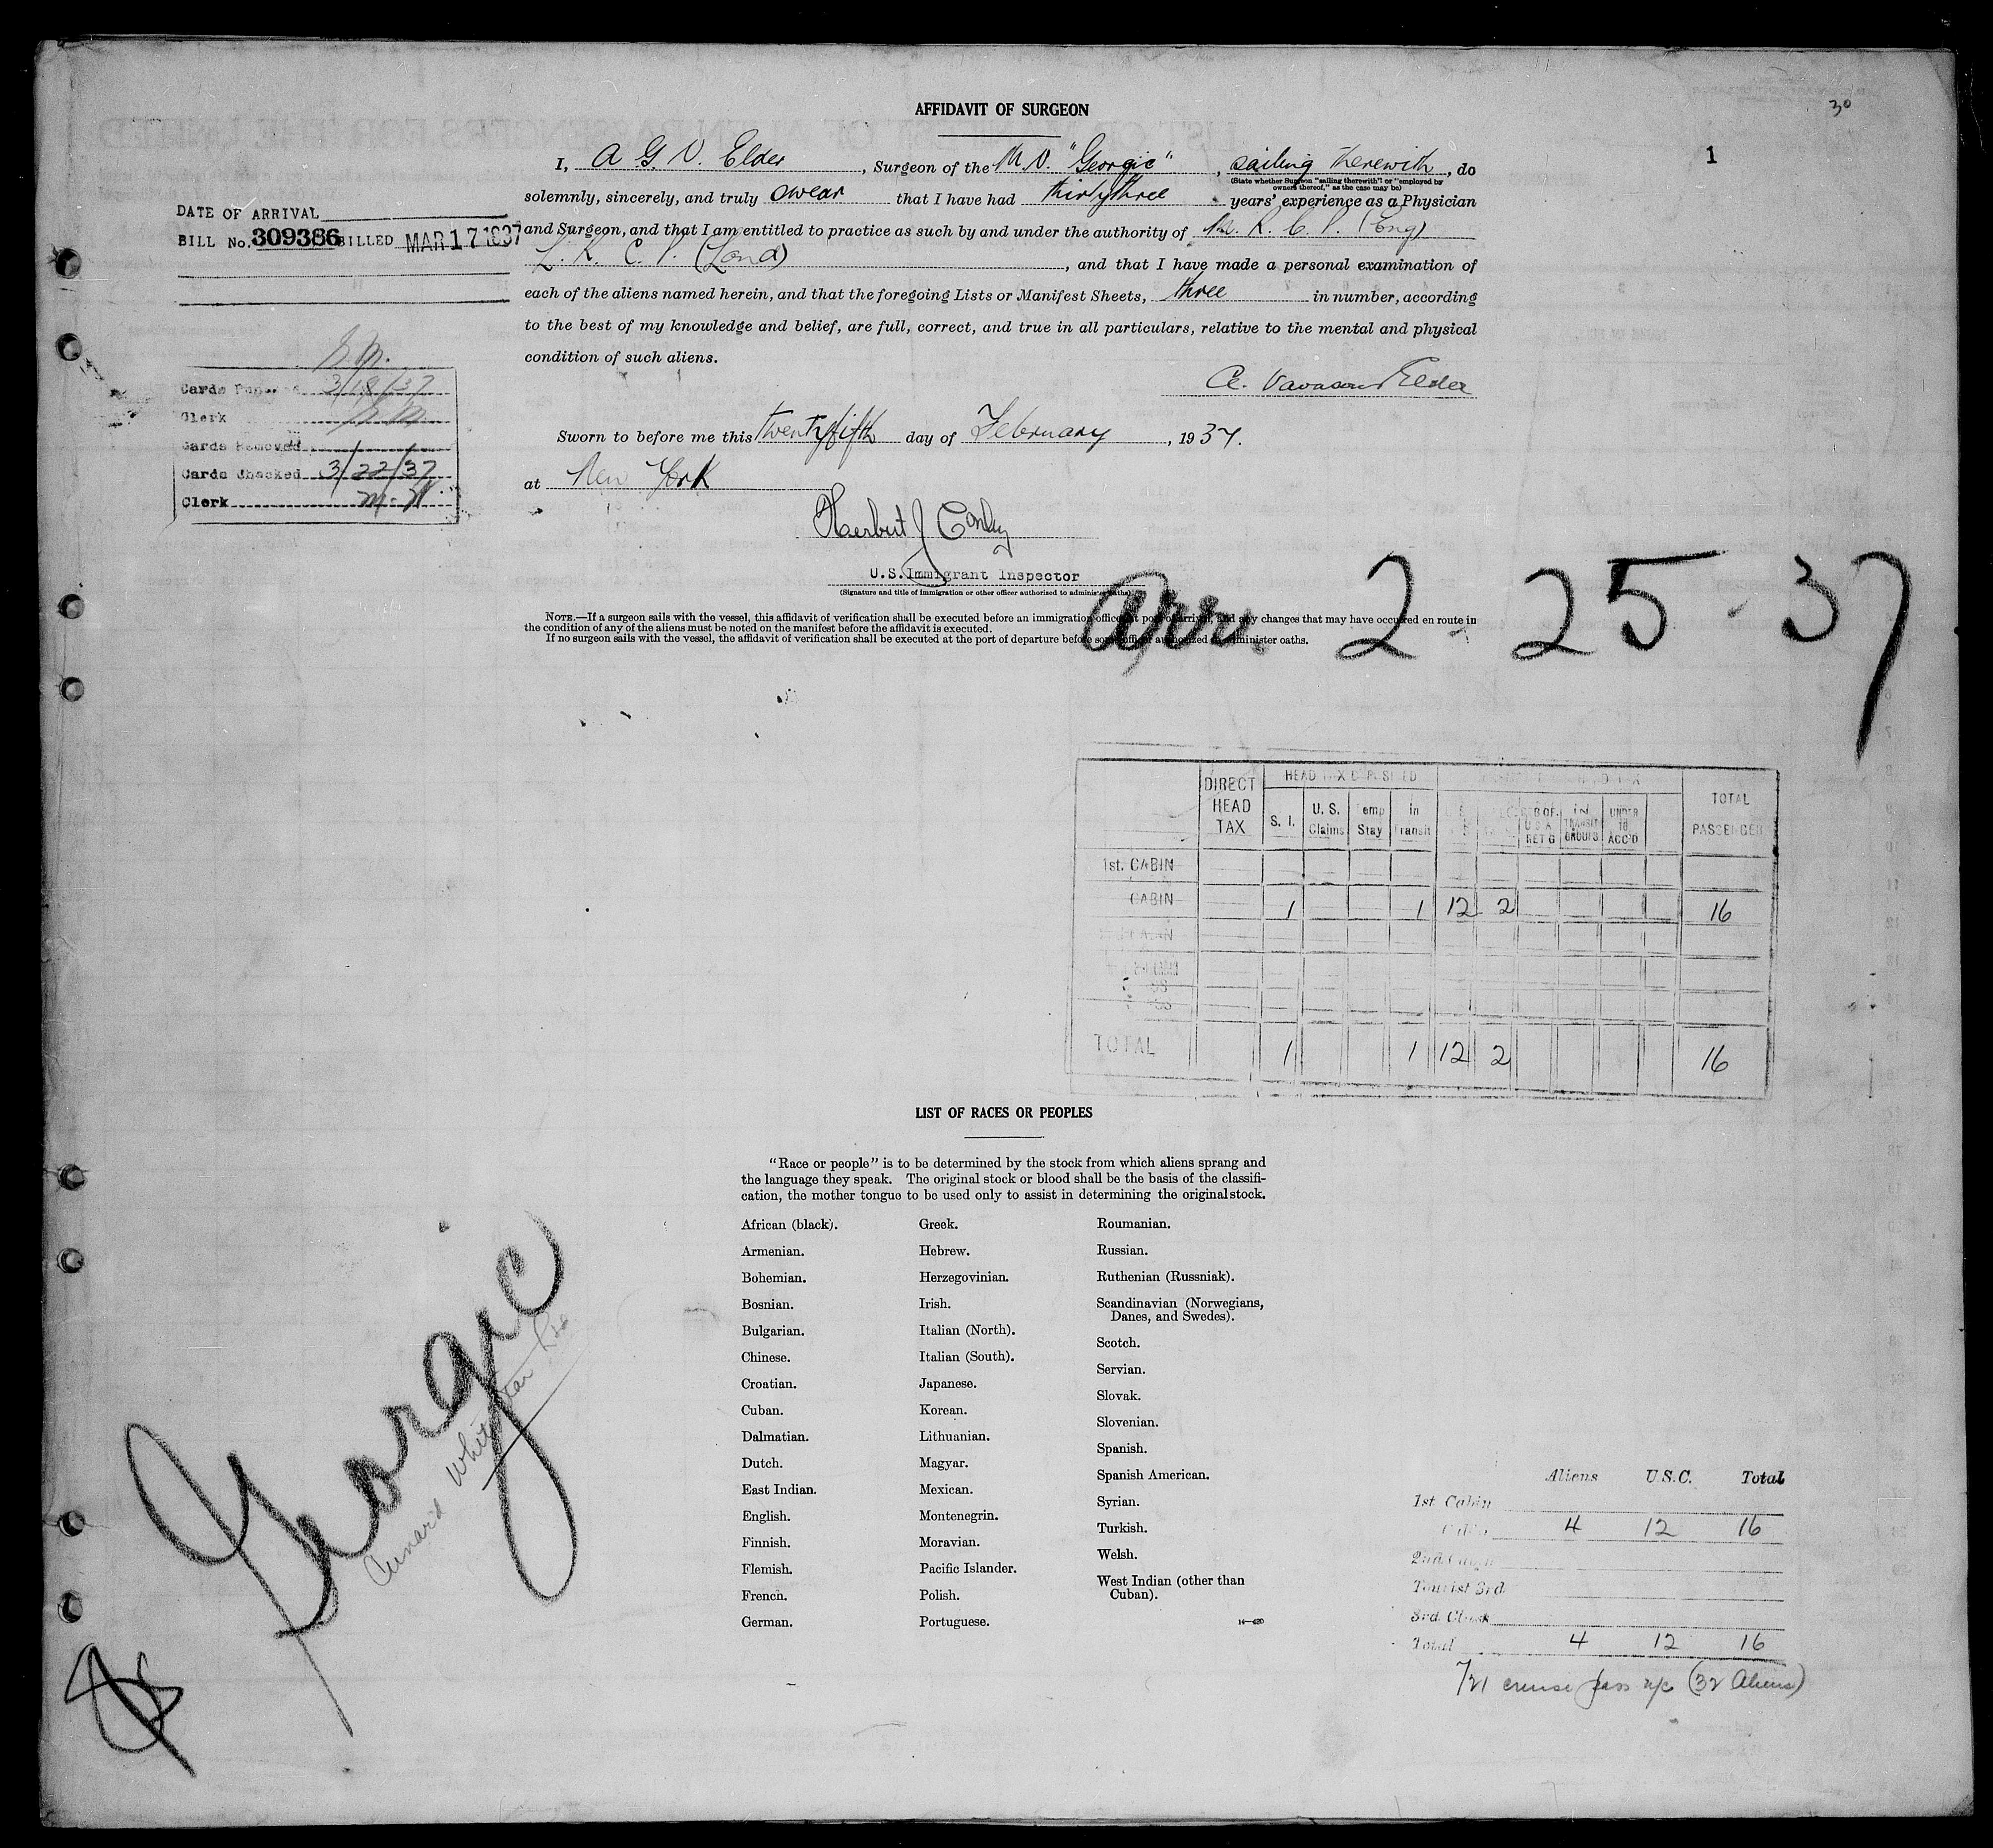 AFFIDAVIT OF SURGEON
30
1
I, A G V. Elder, Surgeon of the M.V. "Georgic", sailing therewith, do
(State whether Surgeon "sailing therewith" or "employed by
owners thereof," as the case may be)
solemnly, sincerely, and truly swear that I have had thirtythree years' experience as a Physician
and Surgeon, and that I am entitled to practice as such by and under the authority of M. R. C. S. (Eng)
L. R. C. P. (Lond), and that I have made a personal examination of
each of the aliens named herein, and that the foregoing Lists or Manifest Sheets, three in number, according
to the best of my knowledge and belief, are full, correct, and true in all particulars, relative to the mental and physical
condition of such aliens.
A. Vavasour Elder
Sworn to before me this twentyfifth day of February, 1937.
at New York
Herbert J Conley
U.S. Immigrant Inspector
(Signature and title of immigration or other officer authorized to administer oaths)
NOTE.—If a surgeon sails with the vessel, this affidavit of verification shall be executed before an immigration officer at port of arrival, and any changes that may have occurred en route in
the condition of any of the aliens must be noted on the manifest before the affidavit is executed.
If no surgeon sails with the vessel, the affidavit of verification shall be executed at the port of departure before some officer authorized to administer oaths.
DATE OF ARRIVAL
BILL No. 309386 BILLED MAR 17 1937
Cards 3/18/37
Clerk
Cards Removed
Cards Checked 3/22/37
Clerk M-W
Arr. 2-25-37
DIRECT HEAD TAX
HEAD TAX DEPOSITED
S. I.
U. S. Claims
Temp Stay
In Transit
UNDER 16 ACC'D
TOTAL PASSENGER
1st. CABIN
CABIN 1 1 12 2 16
TOTAL 1 1 12 2 16
LIST OF RACES OR PEOPLES
"Race or people" is to be determined by the stock from which aliens sprang and
the language they speak. The original stock or blood shall be the basis of the classifi-
cation, the mother tongue to be used only to assist in determining the original stock.
African (black).
Armenian.
Bohemian.
Bosnian.
Bulgarian.
Chinese.
Croatian.
Cuban.
Dalmatian.
Dutch.
East Indian.
English.
Finnish.
Flemish.
French.
German.
Greek.
Hebrew.
Herzegovinian.
Irish.
Italian (North).
Italian (South).
Japanese.
Korean.
Lithuanian.
Magyar.
Mexican.
Montenegrin.
Moravian.
Pacific Islander.
Polish.
Portuguese.
Roumanian.
Russian.
Ruthenian (Russniak).
Scandinavian (Norwegians,
Danes, and Swedes).
Scotch.
Servian.
Slovak.
Slovenian.
Spanish.
Spanish American.
Syrian.
Turkish.
Welsh.
West Indian (other than
Cuban).
Georgic
Cunard White Star Ltd
Aliens U.S.C. Total
1st. Cabin
Cabin 4 12 16
Tourist 3rd
3rd. Class
Total 4 12 16
721 cruise pass (32 Aliens)